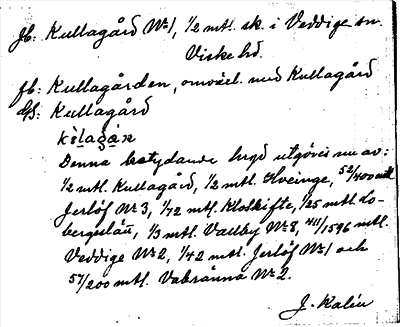 Jb: Kullagård No 1, 1/2 mtl. sk. i Veddige sn.
Viske hd.
fb: Kullagården, omväxl. med Kullagård
GS: Kullagård
Denna betydande bygd utgöres nu av:
1/2 mtl. Kullagård, 1/2 mtl. Hveinge, 52/400 mtl
Jerlöf No 3, 1/72 mtl. Klockifte, 1/25 mtl. Lo-
bergslän, 1/3 mtl. Vallby No 8, 411/1596 mtl.
Veddige No 2, 1/42 mtl. Jerlöf No 1 och
57/200 mtl. Vabränna No 2.
J. Kalén